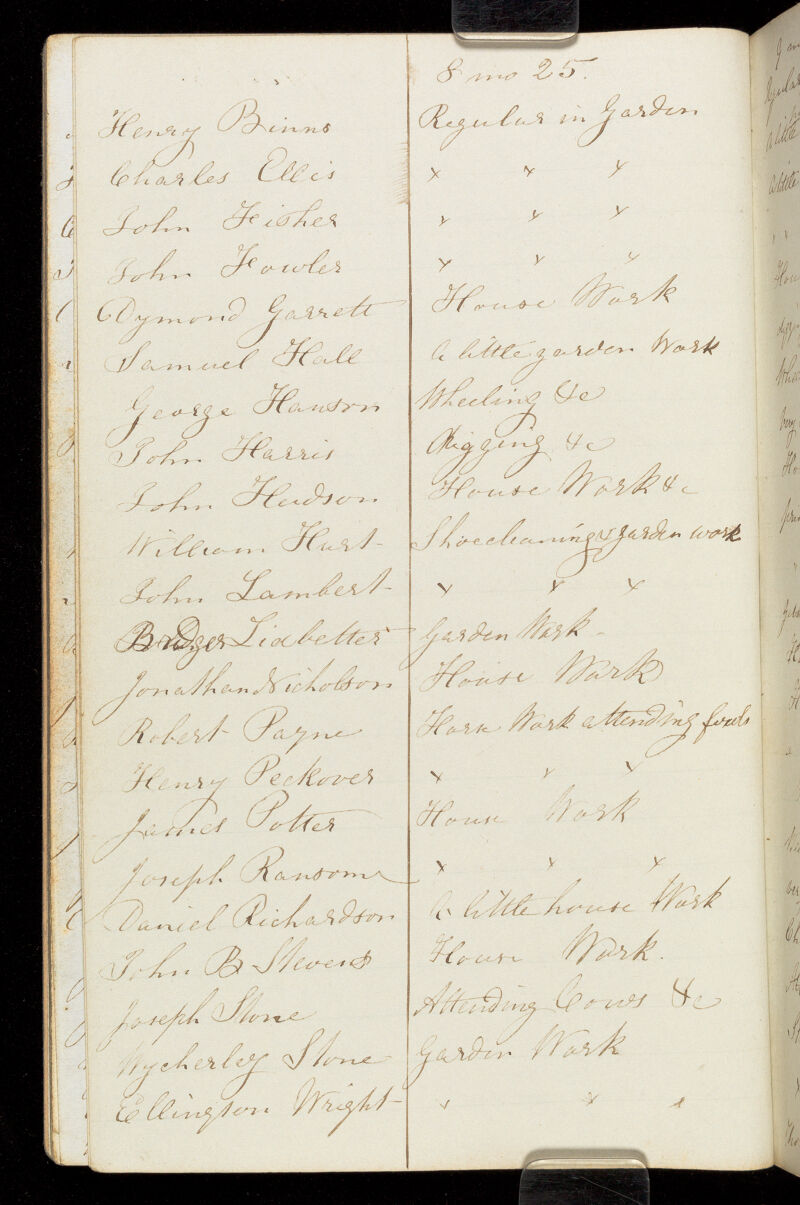 8 mo 25.
Henry Binns Regular in Garden
Charles Ellis " " "
John Fisher " " "
John Fowler " " "
Dymond Garrett House Work
Samuel Hall A little garden Work
George Hanson Wheeling &c
John Harris Digging &c
John Hudson House Work &c
William Hurt Shoecleaning & garden work
John Lambert " " "
Bridger Lidbetter Garden Work
Jonathan Nicholson House Work
Robert Payne House Work attending fowls
Henry Peckover " " "
James Potter House Work
Joseph Ransome " " "
Daniel Richardson A little house Work
John B Stevens House Work.
Joseph Stone Attending Cows &c
Wycherley Stone Garden Work
Ellington Wright " " "